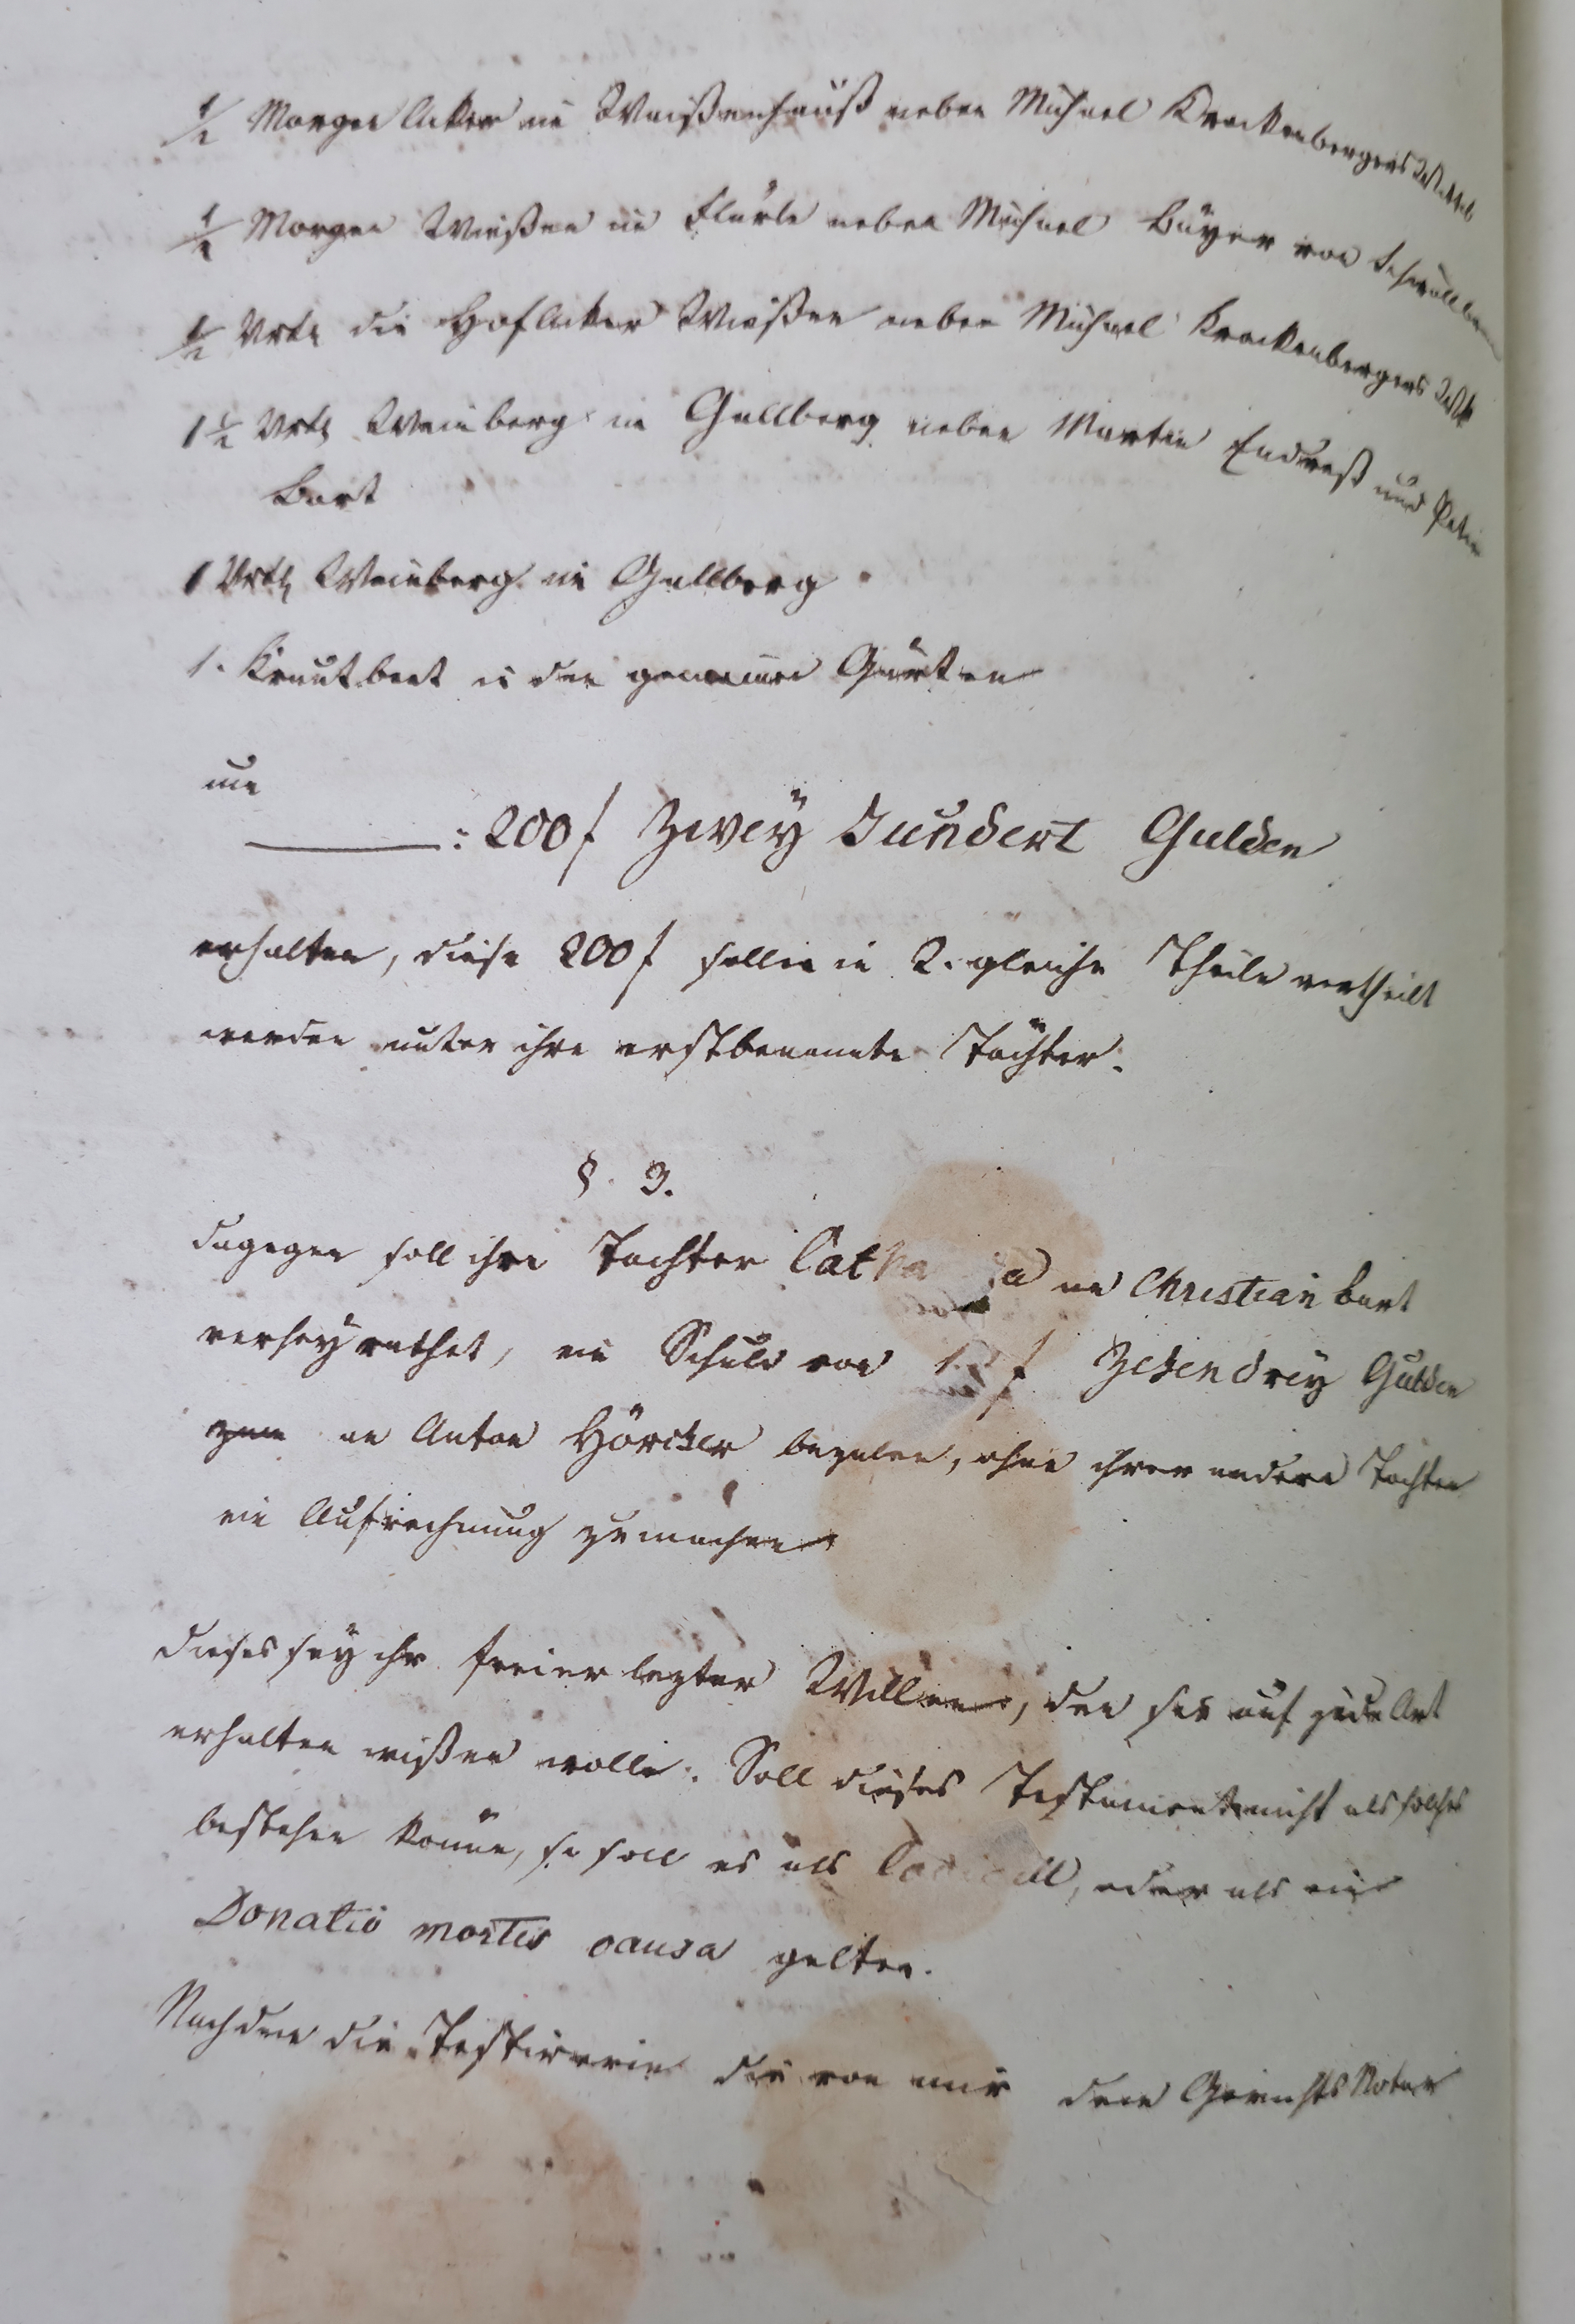 1/2 Morgen Acker in Waißenhauß neben Michael Krackenbergers Wittb
1/2 Morgen Wießen in Flürle neben Michael Bäyer von
1/2 Vrtl die Hofacker Wießen neben Michael Krackenbergers Wtb
1 1/2 Vrtl Weinberg in Gallberg neben Martin Endreß und Peter
Bart
1 Vrtl Weinberg in Gallberg
1. Krautbeet in den gemeinen Gärten
um
: 200 f Zweÿ Hundert Gulden
erhalten, diese 200 f sollen in 2. gleiche Theile vertheilt
werden unter ihre erstbenannte Töchter.
§. 3.
dagegen soll ihre Tochter Cath a an Christian Bart
verheyrathet, ein Schuld von 13 f Zehendreÿ Gulden
an Anton Hörcher bezalen, ohne ihrer andern Tochter
ein Aufrechnung zu machen
dieses seÿ ihr freier lezter Willen, den sie auf jede Art
erhalten wißen wolle. Soll dieses Testament nicht als solches
bestehen könne, so soll es als Codicill, oder als ein
Donatio mortis causa gelten.
Nachdem die Testirerin die von mir dem Gerichts Notar